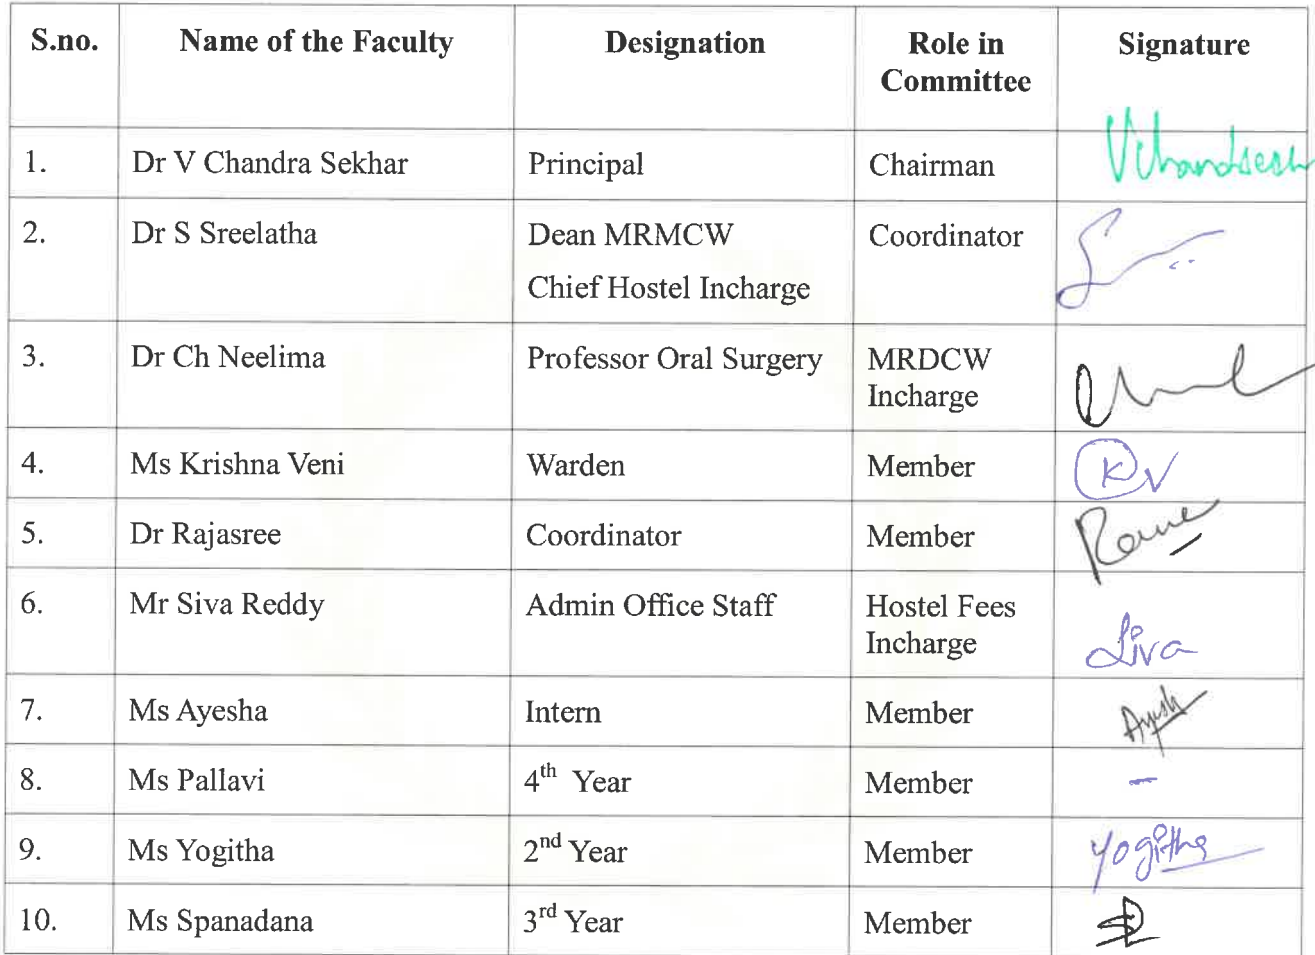 S.no. Name of the Faculty Designation Role in Signature
Committee
1. Dr V Chandra Sekhar Principal Chairman
2. Dr S Sreelatha Dean MRMCW Coordinator
Chief Hostel Incharge
3. Dr Ch Neelima Professor Oral Surgery MRDCW
Incharge
4. Ms Krishna Veni Warden Member KV
5. Dr Rajasree Coordinator Member
6. Mr Siva Reddy Admin Office Staff Hostel Fees
Incharge Siva
7. Ms Ayesha Intern Member
8. Ms Pallavi 4th Year Member -
9. Ms Yogitha 2nd Year Member Yogitha
10. Ms Spanadana 3rd Year Member